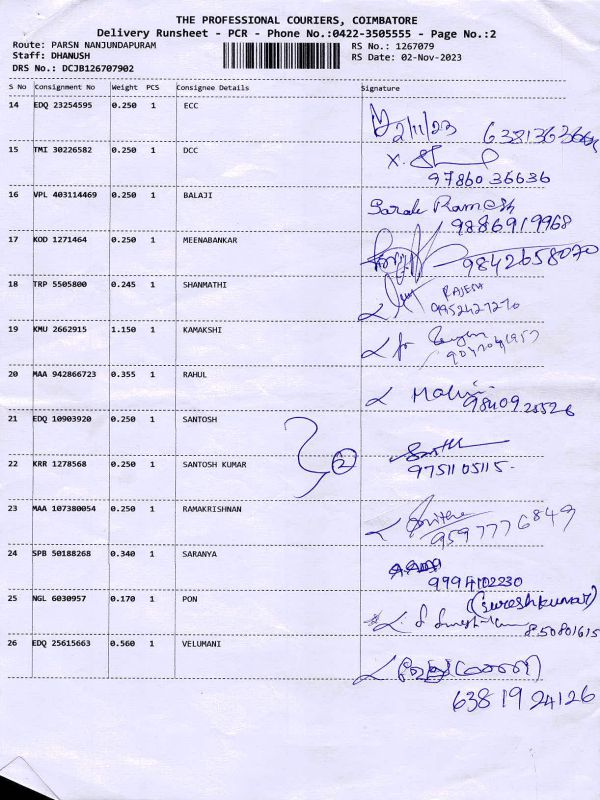 THE PROFESSIONAL COURIERS, COIMBATORE
Delivery Runsheet - PCR - Phone No.:0422-3505555 - Page No.:2
Route: PARSN NANJUNDAPURAM RS No.: 1267079
Staff: DHANUSH RS Date: 02-Nov-2023
DRS No.: DCJB126707902
S No Consignment No Weight PCS Consignee Details Signature
14 EDQ 23254595 0.250 1 ECC
2/11/23
15 TMI 30226582 0.250 1 DCC
9786036636
16 VPL 403114469 0.250 1 BALAJI
Ramesh
9886919968
17 KOD 1271464 0.250 1 MEENABANKAR
9842658070
18 TRP 5505800 0.245 1 SHANMATHI
RAJESH
9952427270
19 KMU 2662915 1.150 1 KAMAKSHI
20 MAA 942866723 0.355 1 RAHUL
21 EDQ 10903920 0.250 1 SANTOSH
2
22 KRR 1278568 0.250 1 SANTOSH KUMAR
9751105115.
23 MAA 107380054 0.250 1 RAMAKRISHNAN
9597776849
24 SPB 50188268 0.340 1 SARANYA
9994102230
25 NGL 6030957 0.170 1 PON
(Sureshkumar)
850801615
26 EDQ 25615663 0.560 1 VELUMANI
6381924126